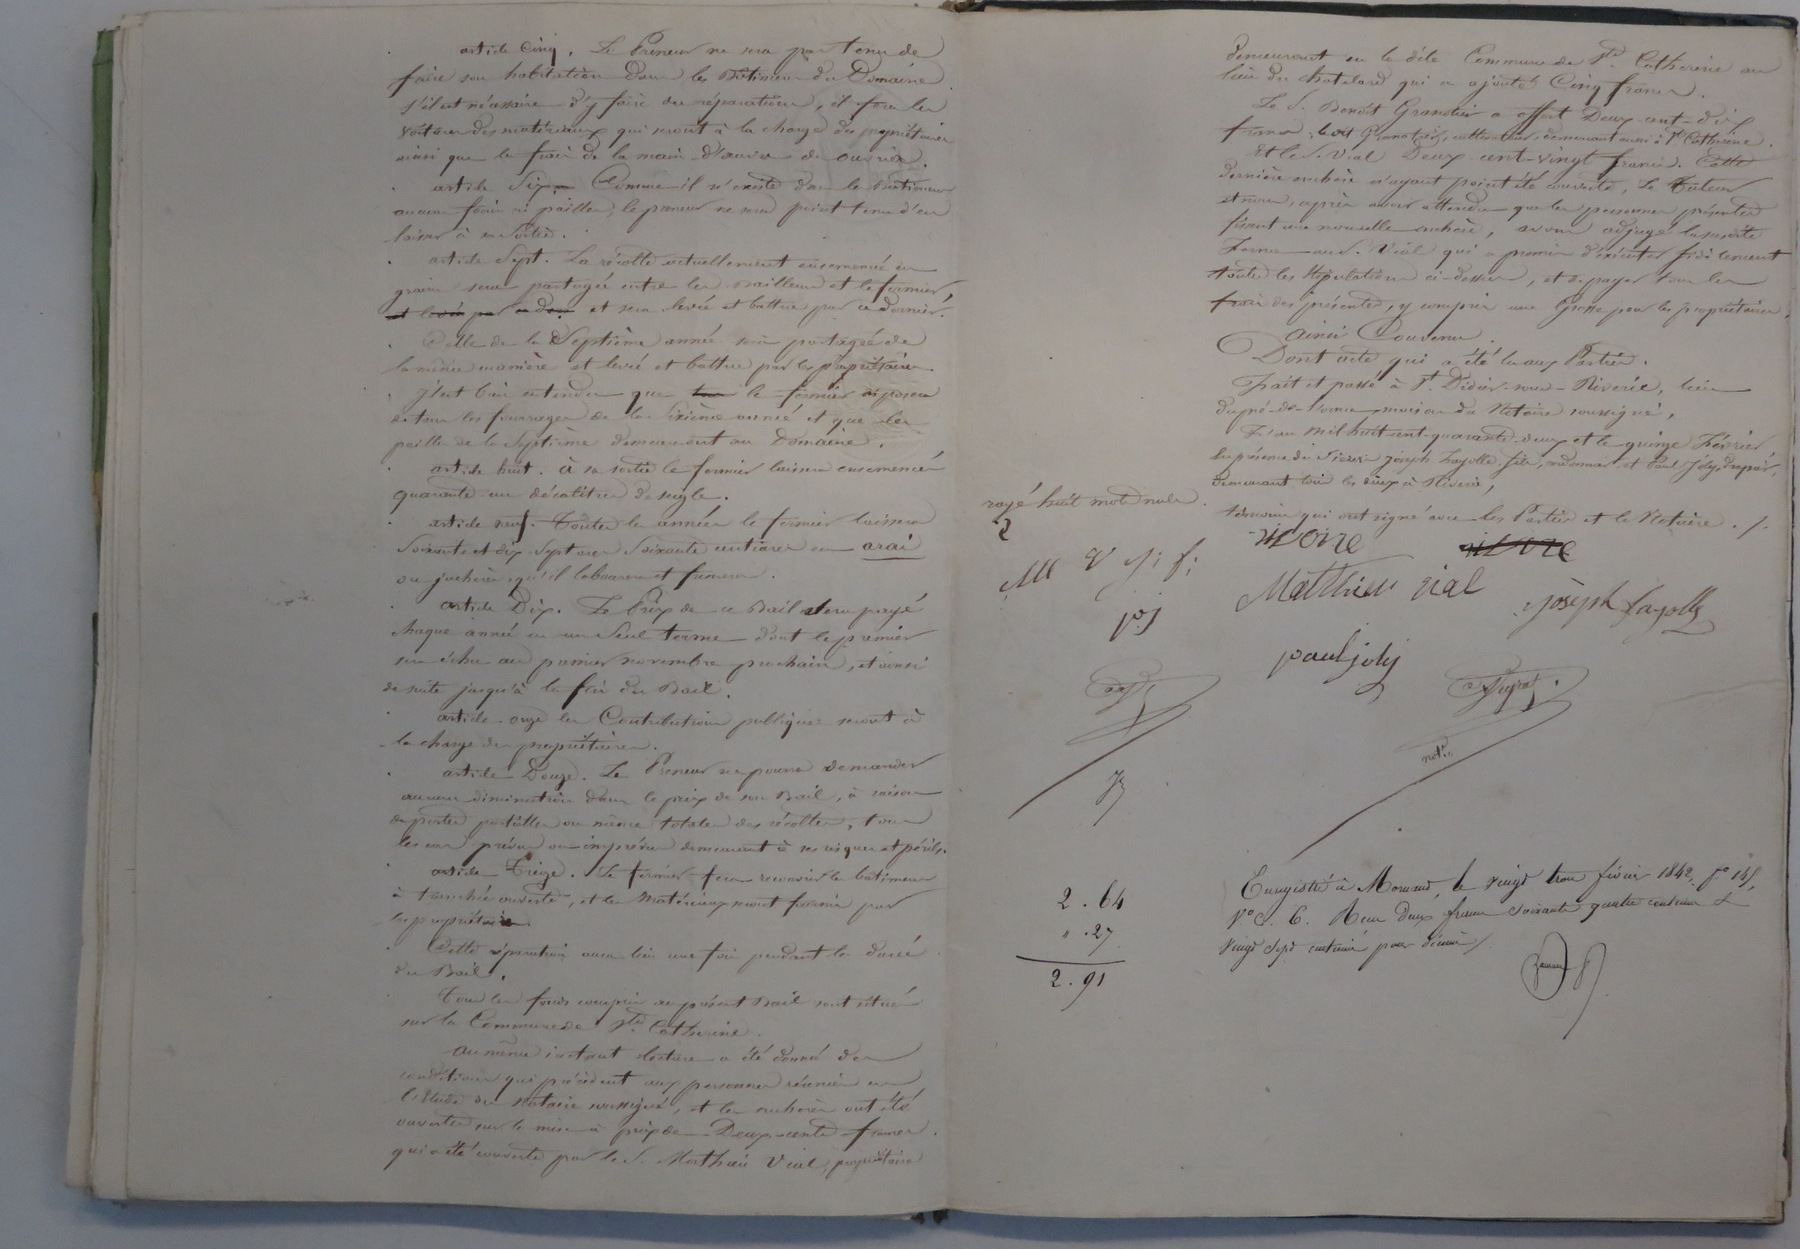 article Cinq. Le Preneur ne sera pas tenu de
faire son habitation dans les Bâtimens du Domaine
s'il est nécessaire d'y faire des réparations, il fera les
voitures des matériaux qui seront à la charge des propriétaires
ainsi que les frais de la main d'œuvre des ouvriers.
article Six. Comme il n'existe dans les Bâtimens
aucuns foins ni pailles, le preneur ne sera point tenu d'en
laisser à sa Sortie.
article Sept. La récolte actuellement ensemencée en
grains sera partagée entre les Bailleurs et le fermier,
et levée par ce der. et sera levée et battue par ce dernier.
Celle de la Septième année sera partagée de
la même manière et levée et battue par les propriétaires
Il est bien entendu que le fermier disposera
de tous les fourrages de la Sixième année et que les
pailles de la Septième demeureront au Domaine.
article huit. à sa sortie le fermier laissera ensemencé
quarante-un décalitres de seigle.
article neuf. Toutes les années le fermier laissera
Soixante et dix-Sept ares Soixante centiares en arai
ou jachère, qu'il labourera et fumera.
article Dix. Le Prix de ce Bail Sera payé
chaque année en un Seul terme dont le premier
sera échu au premier novembre prochain, et ainsi
de suite jusqu'à la fin du Bail.
article onze les Contributions publiques seront à
la charge des propriétaires.
article Douze. Le Preneur ne pourra demander
aucune diminution dans le prix de son Bail, à raison
de pertes partielles ou même totales des récoltes, tous
les cas prévus ou imprévus demeurant à ses risques et périls.
article Treize. Le fermier fera recouvrir les batimens
à tranchée ouverte, et les Matériaux seront fournis par
les propriétaires.
Cette réparation aura lieu une fois pendant la durée
du Bail.
Tous les fonds compris au présent Bail sont situés
sur la Commune de Ste. Catherine.
Au même instant lecture a été donné des
conditions qui précèdent aux personnes réunies en
l'étude du notaire soussigné, et les enchères ont été
ouvertes sur la mise à prix de Deux-cents francs
qui a été couverte par le S. Mathieu Vial, propriétaire
demeurant en la dite Commune de Ste. Catherine au
lieu du chatelard qui a ajouté Cinq francs.
Le S. Benoît Granotier a offert Deux-cent-dix
francs, ledit Granotier, cultivateur demeurant aussi à Ste. Catherine.
Et le S. Vial Deux-cent-vingt francs. Cette
dernière enchère n'ayant point été couverte, Le Tuteur
et nous, après avoir attendu que les personnes présentes
fissent une nouvelle enchère, avons adjugé la susdite
Ferme au S. Vial qui a promis d'exécuter fidèlement
toutes les Stipulations ci-dessus, et de payer tous les
frais des présentes, y compris une Grosse pour les propriétaires.
Ainsi Convenu.
Dont acte qui a été lu aux Parties.
Fait et passé à St. Didier-sous-Riverie, lieu
du pré-de-l'orme, maison du Notaire soussigné,
L'an mil huit-cent-quarante-deux et le quinze Février
En présence de Sieurs Joseph Fayolle fils, cordonnier et Paul Joly, drapier,
demeurant tous les deux à Riverie,
témoins qui ont signé avec les Parties et le Notaire. /.
rayé huit mots nuls
rivoire
M V J. f.
Matthieu vial
joseph fayolle
p. J
paul joly
not.re
2 . 64
" . 27
2 . 91
Enregistré à Mornant, le vingt trois février 1842, fo 145,
Vo C. 6. Reçu deux francs soixante quatre centimes &
vingt sept centimes pour décime /.